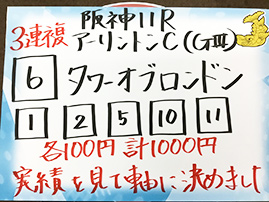 阪神11R
3連複 アーリントンC(GⅢ)
6 タワーオブロンドン
1 2 5 10 11
各100円 計1000円
実績を見て軸に決めまし